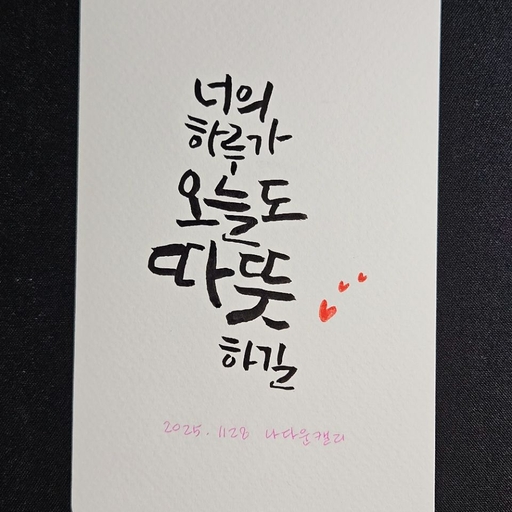 너의
하루가
오늘도
따뜻
하길
2025. 1128 나다운캘리